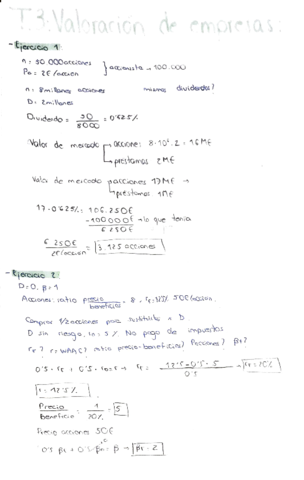 T.3: Valoración de empresas:
- Ejercicio 1:
n = 50 000 acciones
P₀ = 2€/acción } accionista → 100.000
n = 8 millones acciones mismos dividendos?
D = 2 millones
Dividendo = 50/8000 = 0'625%
Valor de mercado acciones: 8·10⁶·2 = 16M€
préstamos 2M€
Valor de mercado acciones 17M€ →
préstamos 1M€
17·0'625% = 106.250€
-100000€ → lo que tenía
6250€
6250€/2€/acción = 3.125 acciones
- Ejercicio 2
D=0, β=1
Acciones: ratio precio/beneficio = 8 50€/acción.
Comprar 1/2 acciones para sustituirla x D
D sin riesgo, r_D = 5% No pago de impuestos
r_E? r_WACC? ratio precio-beneficio? P acciones? β_E?
0'5·r_E + 0'5·r_D = r → r_E = 12'5-0'5·5/0'5 → r_E = 20%
r = 12'5%
Precio/Beneficio = 1/20% = 5
Precio acciones 50€
0'5 β_E + 0'5 β_D = β → β_E = 2